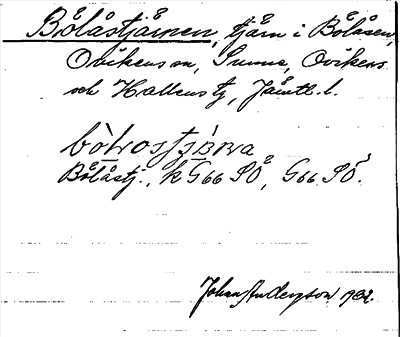 Bölåstjärnen, tjärn i Bölåsen,
Ovikens sn, Sunne, Ovikens
och Hallens tg, Jämtl. l.
Bölåstj., k G66 SÖ, G66 SÖ.
Johan Anderson 1932.